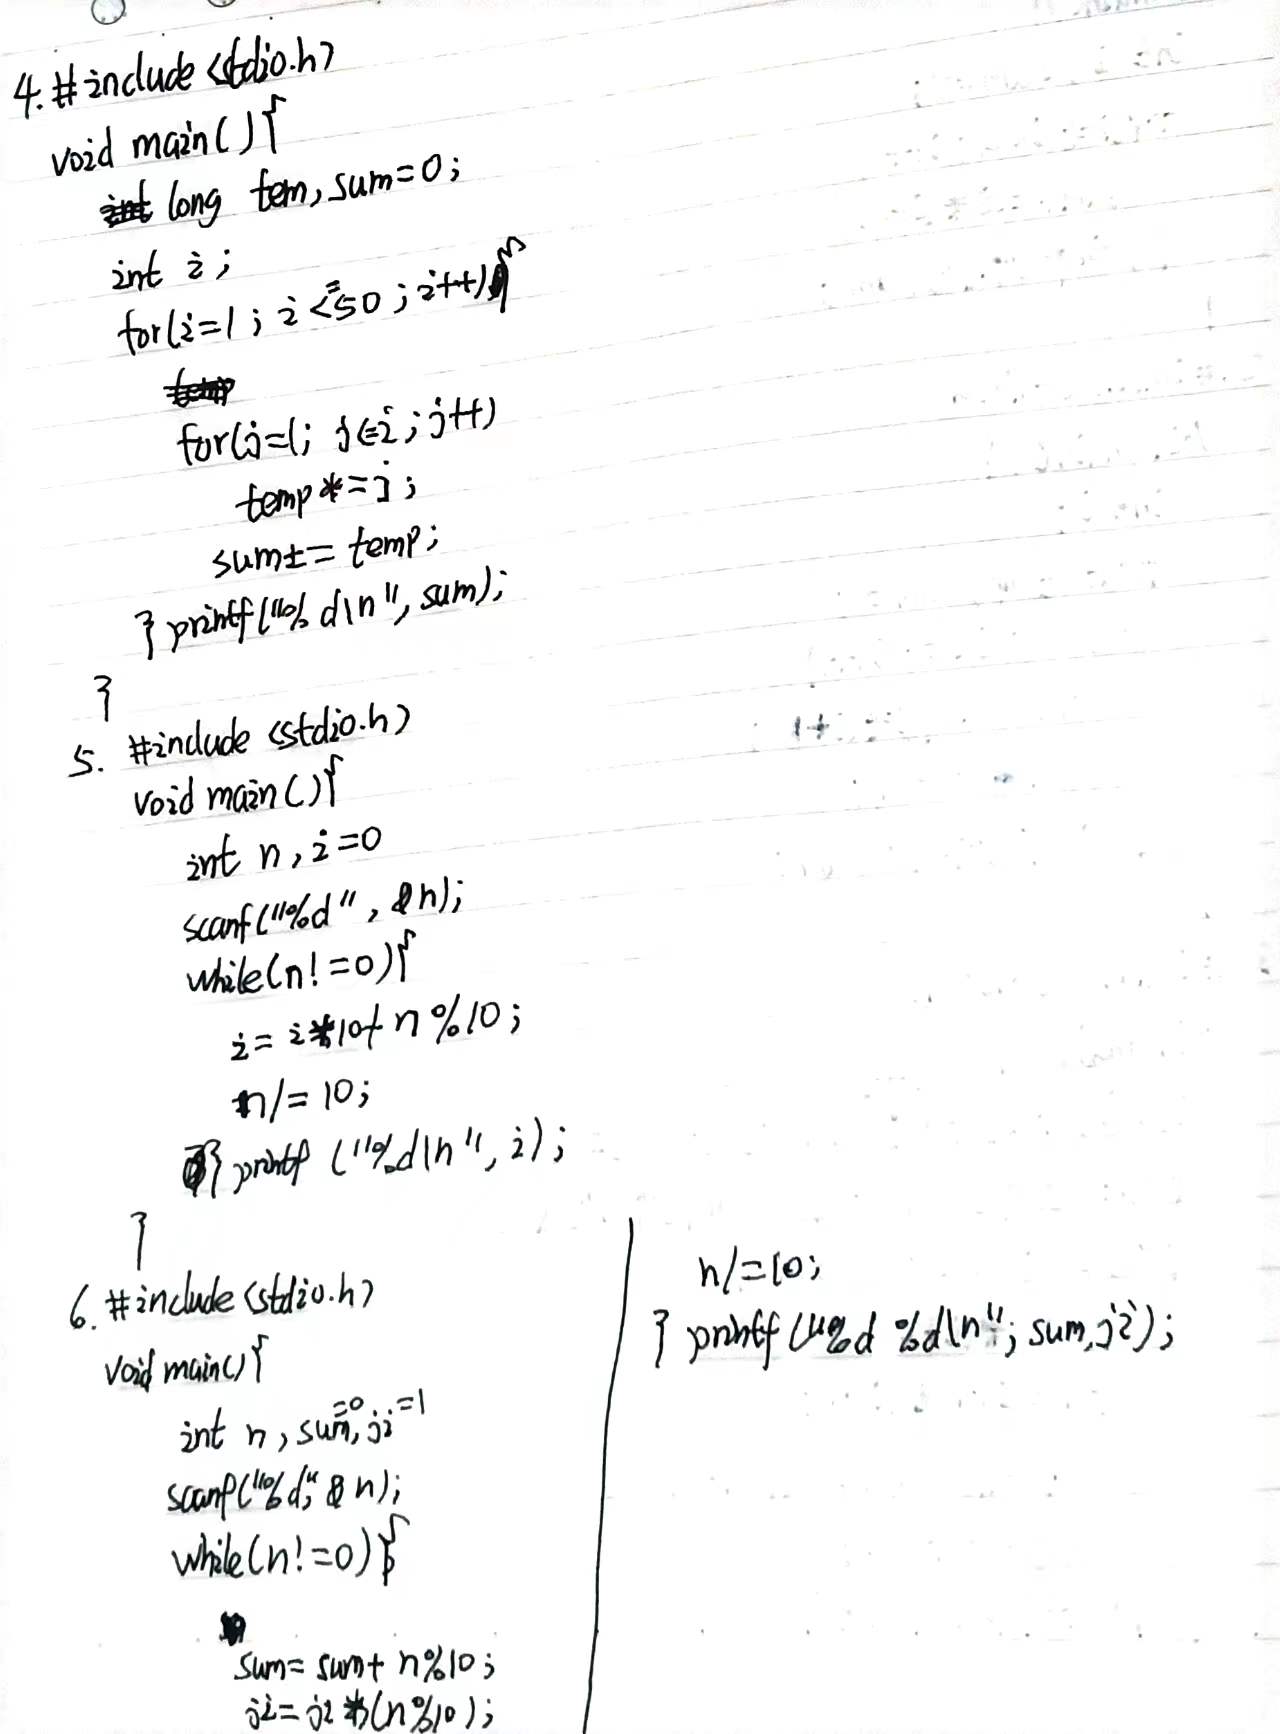 4. #include <stdio.h>
void main(){
long tem, sum=0;
int i;
for(i=1; i<=50; i++){
for(j=1; j<=i; j++)
temp*=j;
sum+= temp;
} printf("%d\n", sum);
}
5. #include <stdio.h>
void main(){
int n, i=0
scanf("%d", &n);
while(n!=0){
i= i*10+ n%10;
n/= 10;
} printf ("%d\n", i);
}
6. #include <stdio.h>
void main(){
int n, sum=0, ji=1
scanf("%d", &n);
while(n!=0){
sum= sum+ n%10;
ji= ji *(n%10);
n/=10;
} printf ("%d %d\n"; sum, ji);